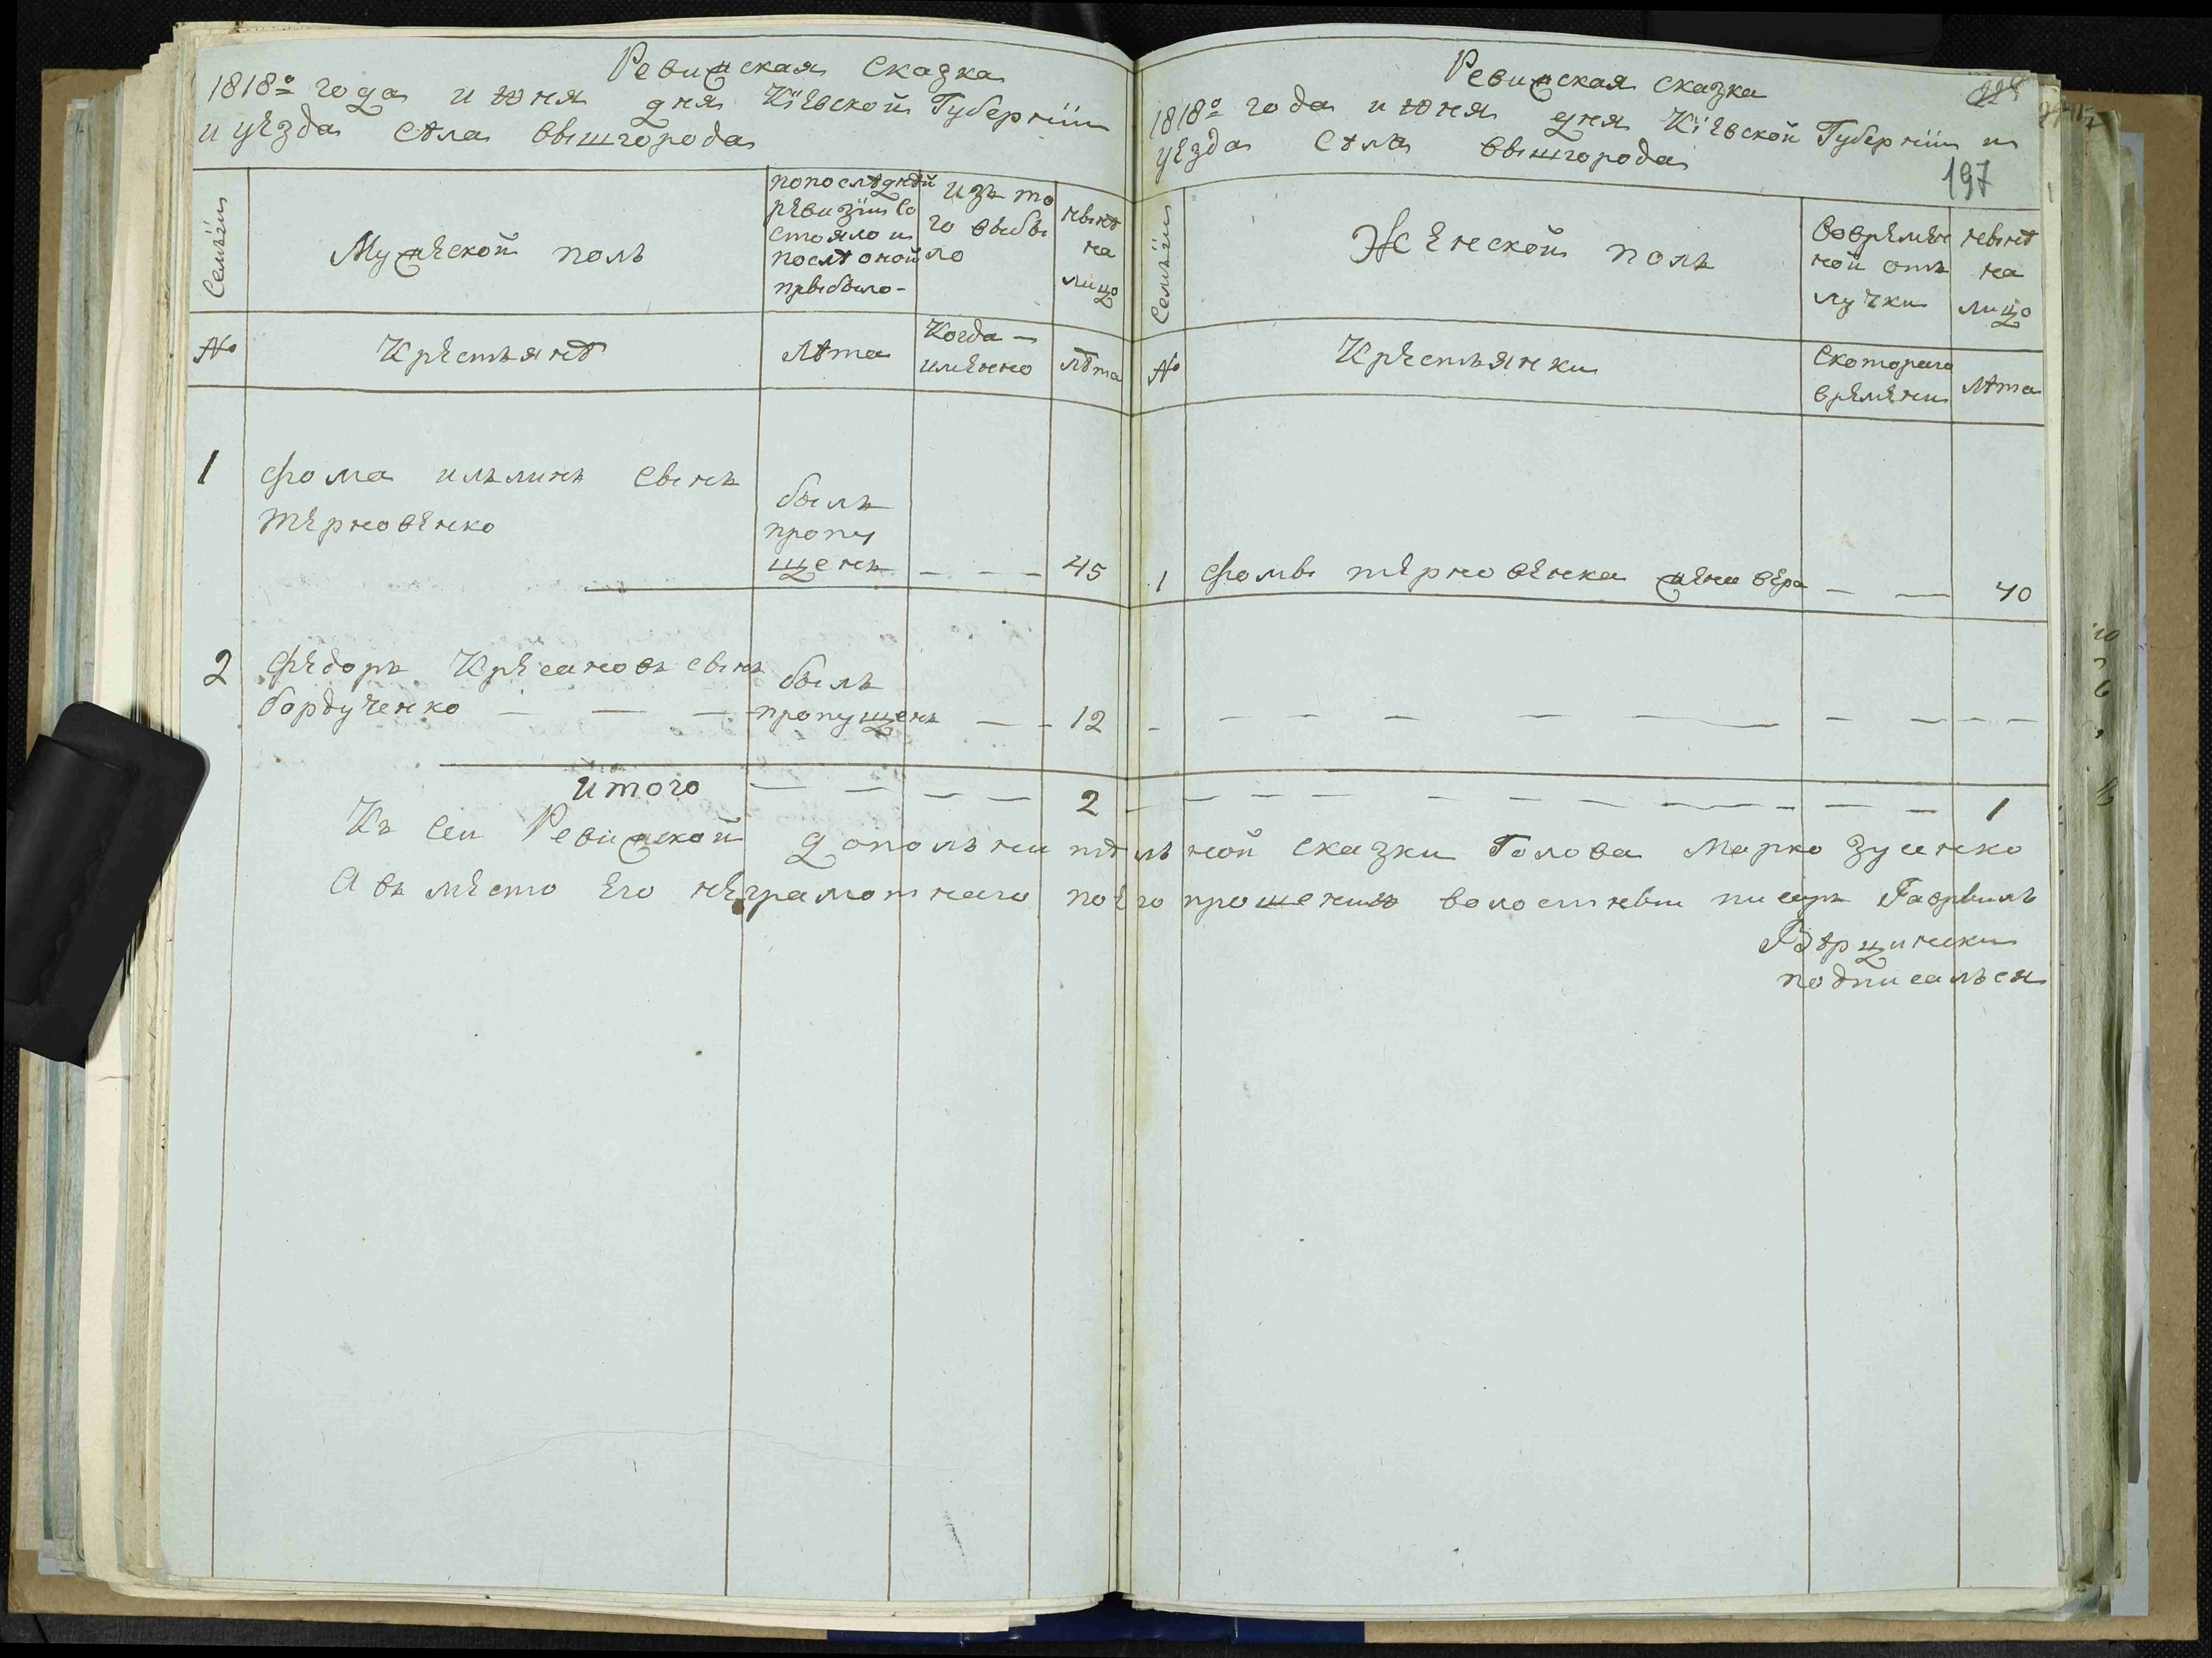 Ревижская сказка
1818го года июня дня Кїевской Губернїи
и уезда Села Вышгорода
Семьїи
Мужеской полъ
попоследней
ревизїи Со
стояло и
после оной
прыбыло-
Изъ то
го выбы
ло
ныне
на
лицо
№
Крестьяне
лѣта
Когда -
именно
лѣта
1
Фома ильинъ Сынъ
терновенко
былъ
пропу
щенъ
- - -
45
2
Федоръ Кресановъ сынъ
бордученко - - -
былъ
пропущенъ
- -
12
итого - - - - 2
Ревижская сказка
1818го года июня дня Кїевской Губернїи и
уезда Села Вышгорода
197
Семьїи
Женской полъ
Вовремен
ной отъ
лучки
ныне
на
лицо
№
Крестьянки
Скотораго
времени
лѣта
1
Фомы терновенка жена вера - - 40
1
Къ сеи Ревижской дополнителъной сказки Голова Марко Зуенко
А въ место Его неграмотнаго поего прошению волостныи писаръ Гаврыилъ
подписалъся